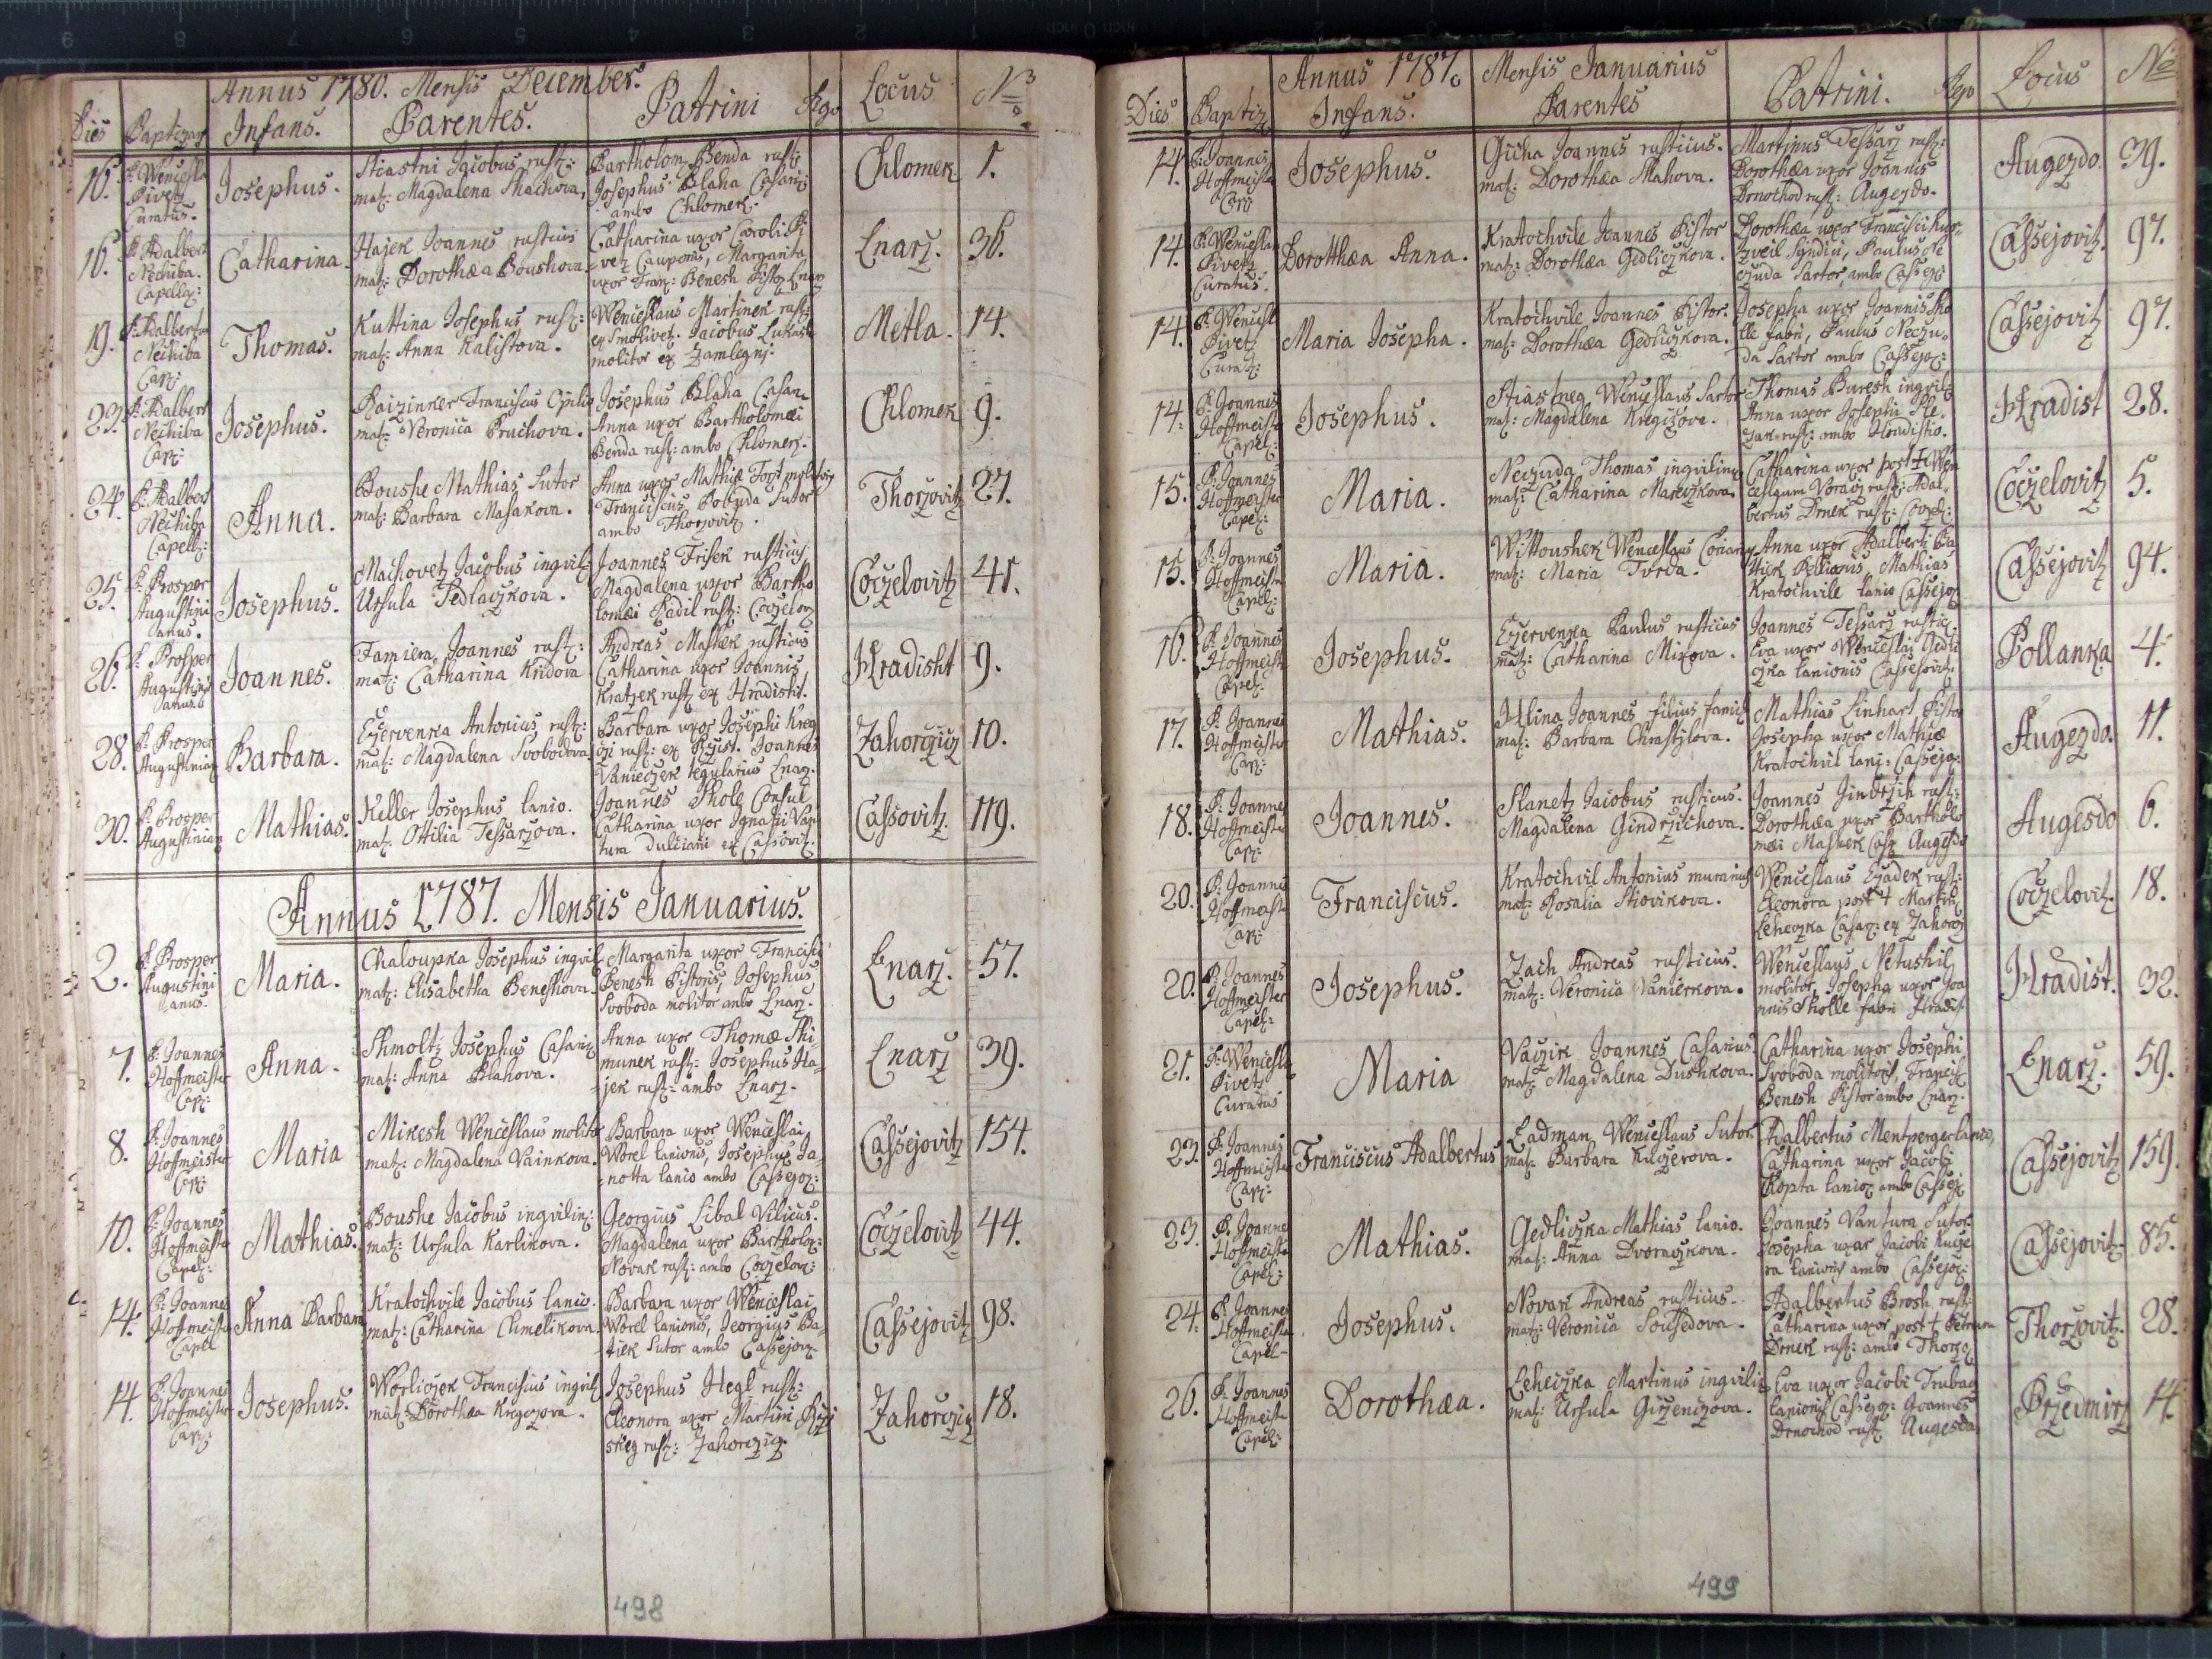 Annus 1780. Mensis December.
Dies Baptizans Infans. Parentes. Patrini Rgo Locus Nro
16. P: Wencesla Pivetz Curatus. Josephus. Stiastni Jacobus rust: mat: Magdalena Machova, Bartholom Benda rust: Josephus Blaha Casariq ambo Chlomek. Chlomek 1.
16. P: Adalbert Nechiba. Capella: Catharina. Hajek Joannes rusticus mat: Dorothæa Boushova. Catharina uxor Caroli Pi vetz Cauponis, Margarita uxor Franz: Benesh Pistoz Enarz Enarz. 36.
19. P: Adalbertus Nechiba Cap: Thomas. Kuttina Josephus rust: mat: Anna Kalistova. Wenceslaus Martinek rust: ex Smolivetz. Jacobus Lukash molitor ex Zamlegnj. Metla. 14.
23. P: Adalbert Nechiba Cap: Josephus. Raizinker Franciscus Opilio mat: Veronica Pruchova. Josephus Blaha Casar. Anna uxor Bartholomæi Benda rust: ambo Chlomek. Chlomek 9.
24. P: Adalbert Nechiba Capell: Anna. Boushe Mathias Sutor mat: Barbara Masakova. Anna uxor Mathiæ Fort molitoris Franciscus Pobuda Sutor ambo Thorzovitz. Thorzovitz 27.
25. P: Prosper Augustini anus. Josephus. Machovetz Jacobus ingvil: Ursula Sedlaczkova. Joannes Frisek rusticus Magdalena uxor Bartho lomæi Radil rust: Coczelov Coczelovitz 41.
26. P: Prosper Augustini anus. Joannes. Famiera Joannes rust: mat: Catharina Kridova Andreas Mashek rusticus Catharina uxor Joannis Kratzek rust ex Hradisht. Hradisht 9.
28. P: Prosper Augustinian Barbara. Czervenka Antonius rust: mat: Magdalena Svobodova Barbara uxor Josephi Kreg czi rust: ex Rzist. Joannes Vanieczek tegularius Enarz. Zahorczicz 10.
30. P: Prosper Augustinian Mathias. Keller Josephus lanio. mat: Ottilia Tessarzova. Joannes Skole Consul Catharina uxor Ignatii Van tura dulciarii ex Cassovitz. Cassovitz. 119.
Annus 1787. Mensis Januarius.
2. P: Prosper Augustini anus. Maria. Chaloupka Josephus ingvil mat: Elisabetha Beneshova. Margarita uxor Francisci Benesh Pistoris, Josephus Svoboda molitor ambo Enarz. Enarz. 57.
7. P: Joannes Hoffmeister Cap: Anna. Shmoltz Josephus Casariq mat: Anna Blahova. Anna uxor Thomæ Shi munek rust: Josephus Ha jek rust: ambo Enarz. Enarz 39.
8. P: Joannes Hoffmeister Cap: Maria Mikesh Wenceslaus molitor mat: Magdalena Vainkova. Barbara uxor Wenceslai Worel lanionis, Josephus Ja notta lanio ambo Cassejov: Cassejovitz 154.
10. P: Joannes Hoffmeister Capel: Mathias. Boushe Jacobus ingvilin: mat: Ursula Karlikova. Georgius Libal Vilicus. Magdalena uxor Bartholom: Novak rust: ambo Coczelov: Coczelovitz 44.
14. P: Joannes Hoffmeister Capel Anna Barbara Kratochvile Jacobus lanio. mat: Catharina Chmelikova. Barbara uxor Wenceslai Worel lanionis, Georgius Ba tiek Sutor ambo Cassejov. Cassejovitz 98.
14. P: Joannes Hoffmeister Cap: Josephus. Worliczek Franciscus ingvil mat: Dorothæa Kregczova. Josephus Hegl rust: Eleonora uxor Martini Krzi stieg rust: Zahorczicz. Zahorczicz 18.
498
Annus 1787. Mensis Januarius
Dies Baptiz Infans. Parentes Patrini. Rgo Locus No
14. P: Joannes Hoffmeister Cap Josephus. Gucha Joannes rusticus. mat: Dorothæa Mahova. Martinus Tessarz rust: Dorothæa uxor Joannis Drnochod rust: Augezdo. Augezdo. 39.
14. P: Wencesla Pivetz Curatus. Dorotthæa Anna. Kratochvile Joannes Pistor mat: Dorothæa Gedliczkova. Dorothæa uxor Francisci Kur zveil Syndici, Paulus Ne czuda Sartor, ambo Cassej: Cassejovitz. 97.
14. P: Wencesl Pivetz Curat: Maria Josepha. Kratochvile Joannes Pistor. mat: Dorothæa Gedliczkova. Josepha uxor Joannis Sko lle fabri, Paulus Neczu da Sartor ambo Cassejov: Cassejovitz 97.
14. P: Joannes Hoffmeister Capel: Josephus. Stiastneg Wenceslaus Sartor mat: Magdalena Kregizova. Thomas Buresh ingvil: Anna uxor Josephi Ple zak rust: ambo Hradistio. Hradist 28.
15. P: Joannes Hoffmeister Capel: Maria. Neczuda Thomas ingvilinus mat: Catharina Mareczkova. Catharina uxor post + Wen ceslaum Voracz rust: Adal bertus Drnek rust: Coczel: Coczelovitz 5.
15. P: Joannes Hoffmeister Capel: Maria. Wittoushek Wenceslaus Coriarius mat: Maria Tvrda. Anna uxor Adalberti Ba tiek Pellionis, Mathias Kratochvile lanio Cassejov Cassejovitz 94.
16. P: Joannes Hoffmeister Capel. Josephus. Czervenka Paulus rusticus mat: Catharina Mixova. Joannes Tessarz rustic. Eva uxor Wenceslai Gedli czka lanionis Cassejovitz. Pollanka 4.
17. P: Joannes Hoffmeister Cap: Mathias. Hlina Joannes filius famil: mat: Barbara Chrastylova. Mathias Linhart Pistor Josepha uxor Mathiæ Kratochvil lani: Cassejov: Augezdo. 11.
18. P: Joannes Hoffmeister Cap: Joannes. Slanetz Jacobus rusticus. Magdalena Gindrzichova. Joannes Jindrzich rust: Dorothæa uxor Bartholo mæi Mashek Cas: Augesdo Augesdo 6.
20. P: Joannes Hoffmeister Cap: Franciscus. Kratochvil Antonius murarius mat: Rosalia Stiovikova. Wenceslaus Czadek rust: Eleonora post + Martin: Leheczka Casar: ex Zahorcz Coczelovitz. 18.
20. P: Joannes Hoffmeister Capel: Josephus. Zach Andreas rusticus. mat: Veronica Vanierkova. Wenceslaus Netushil molitor, Josepha uxor Joa nnis Skolle fabri Hradist. Hradist. 32.
21. P: Wencesla Pivetz Curatus Maria Vaczik Joannes Casarius mat: Magdalena Dushkova. Catharina uxor Josephi Svoboda molitoris, Francis: Benesh Pistor ambo Enarz. Enarz. 59.
23. P: Joannes Hoffmeister Cap: Franciscus Adalbertus Ladman Wenceslaus Sutor. mat: Barbara Kuczerova. Adalbertus Mentperger lanio, Catharina uxor Jacobi Kopta lanio: ambo Cassej Cassejovitz 159.
23. P: Joannes Hoffmeister Capel: Mathias. Gedliczka Mathias lanio. mat: Anna Dvoraczkova. Joannes Vantura Sutor. Josepha uxor Jacobi Kucze ra lanionis ambo Cassejov: Cassejovitz. 85.
24. P: Joannes Hoffmeister Capel- Josephus. Novak Andreas rusticus. mat: Veronica Sousedova. Adalbertus Brosh rust: Catharina uxor post + Petrum Drnek rust: ambo Thorzo Thorzovitz. 28.
26. P: Joannes Hoffmeister Capel: Dorothæa. Leheczka Martinus ingvilin mat: Ursula Girzenizova. Eva uxor Jacobi Trubacz lanionis Cassejov: Joannes Drnochod rust: Augesdo. Przedmirz 14.
499